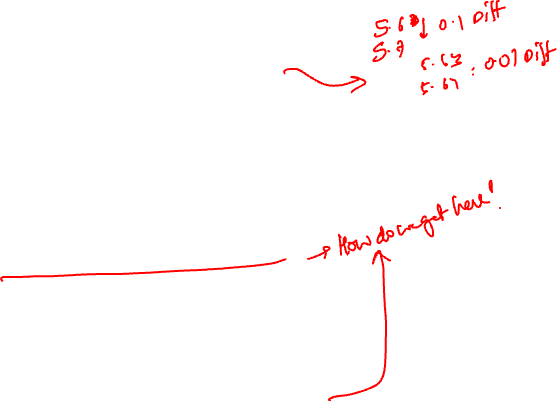 5.6 ↓ 0.1 Diff
5.7
5.63 : 0.01 Diff
5.67
→ How do we get here!